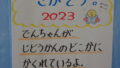 さがそう。
2023
でんちゃんが
じどうかんのどこかに
かくれているよ。